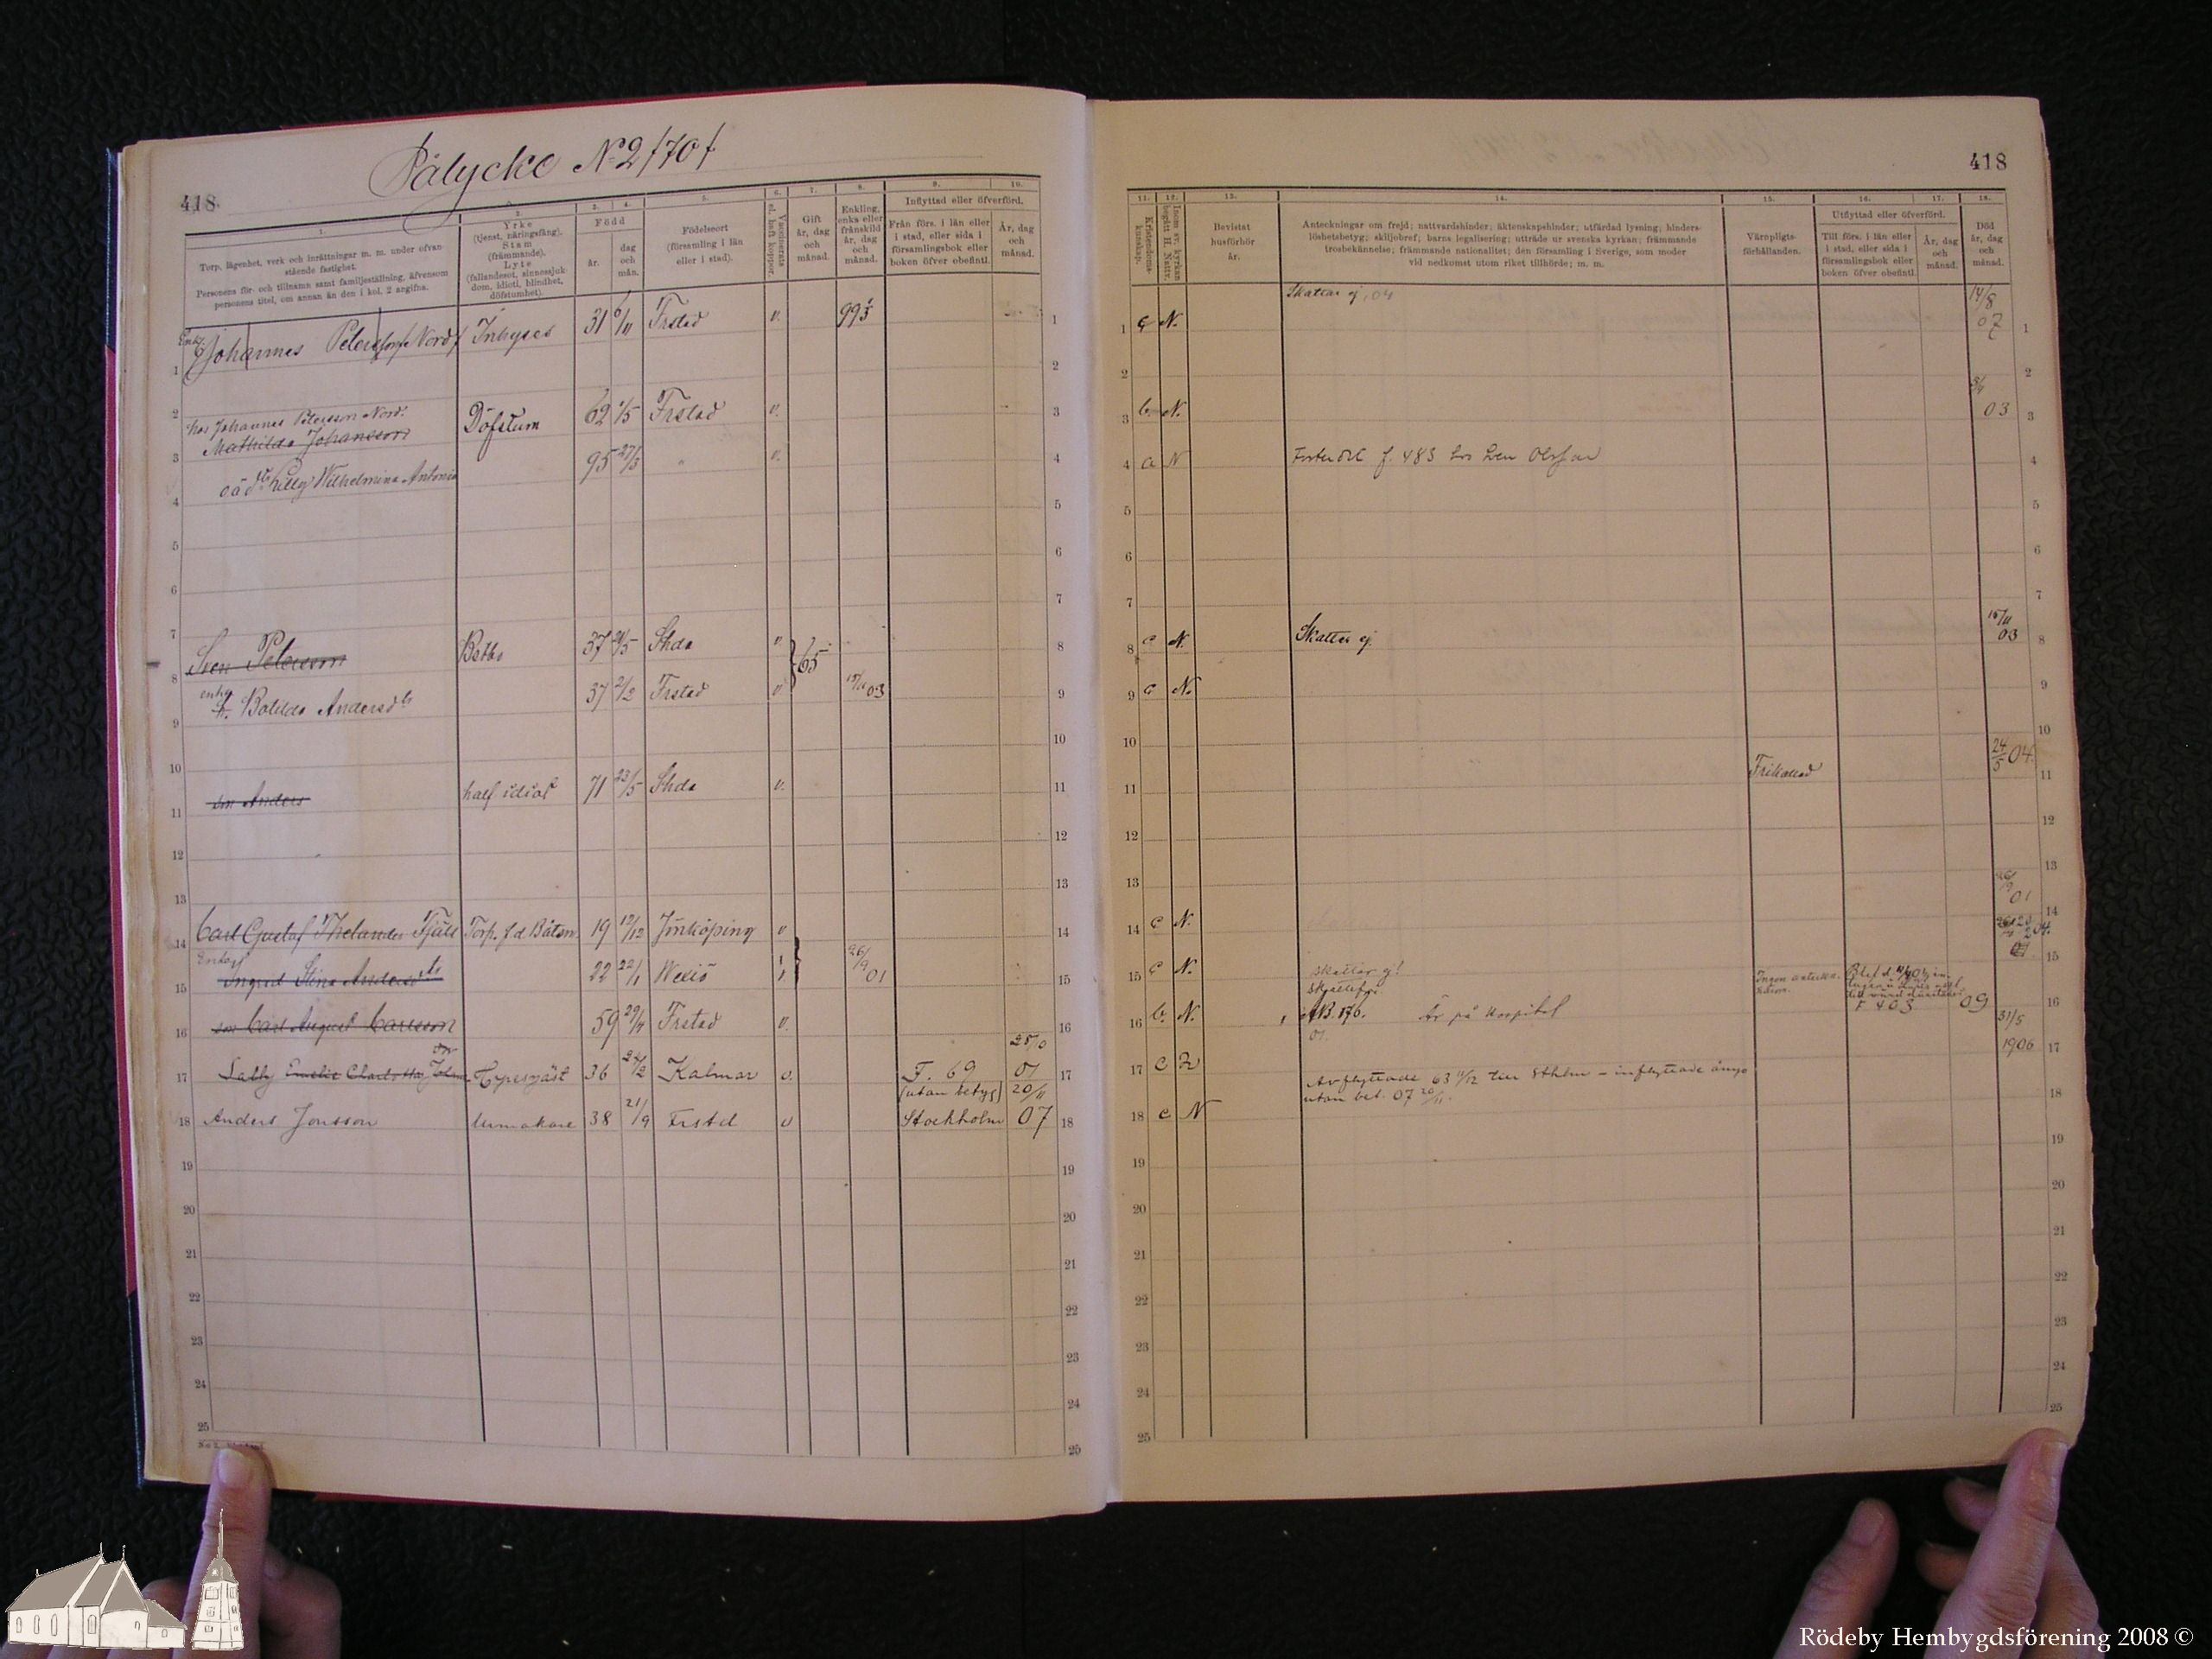 Pålycke No 2 /70/
418
1. 2. 3. 4. 5. 6. 7. 8. 9. 10.
Torp, lägenhet, verk och inrättningar m. m. under ofvan-
stående fastighet.
Personens för- och tillnamn samt familjeställning, äfvensom
personens titel, om annan än den i kol. 2 angifna.
Yrke
(tjenst, näringsfång).
Stam
(främmande).
Lyte
(fallandesot, sinnessjuk-
dom, idioti, blindhet,
döfstumhet).
Född
år.
dag
och
mån.
Födelseort
(församling i län
eller i stad).
Vaccinerats
el. haft koppor.
Gift
år, dag
och
månad.
Enkling,
enka eller
frånskild
år, dag
och
månad.
Inflyttad eller öfverförd.
Från förs. i län eller
i stad, eller sida i
församlingsbok eller
boken öfver obefintl.
År, dag
och
månad.
Enkl.
1 Johannes Petersson Nord Inhyses 31 6/11 Frstad v. 1
2 2
hos Johannes Petersson Nord.
3 Mathilda Johansson Döfstum 62 1/5 Frstad v. 3
4 oä dtr Lilly Wilhelmina Antonia 95 27/3 " v. 4
5 5
6 6
7 7
8 Sven Petersson 37 Shda v 65 8
enka
9 h. Botilda Andersdtr 37 2/2 Frstad v 15/11 03 9
10 10
11 son Anders half idiot 71 23/5 Shda v. 11
12 12
13 13
14 Carl Gustaf Thelander Fjäll Torp. f.d. Båtsm. 19 Jönköping v 14
Enka
15 Ingrid Stina Andersdtr 22 22/1 Wexiö 26/9 01 15
16 son Carl August Carlsson 59 Frstad v. 16
17 Emelie Charlotta 36 24/2 Kalmar v. F. 69 01 17
(utan betyg) 20/11
18 Anders Jonsson 38 21/9 Frstd v Stockholm 07 18
19 19
20 20
21 21
22 22
23 23
24 24
25 25
418
11. 12. 13. 14. 15. 16. 17. 18.
Kristendoms-
kunskap.
Inom sv. kyrkan
begått H. Nattv.
Bevistat
husförhör
år.
Anteckningar om frejd; nattvardshinder; äktenskapshinder; utfärdad lysning; hinders-
löshetsbetyg; skiljobref; barns legalisering; utträde ur svenska kyrkan; främmande
trosbekännelse; främmande nationalitet; den församling i Sverige, som moder
vid nedkomst utom riket tillhörde; m. m.
Värnpligts-
förhållanden.
Utflyttad eller öfverförd.
Till förs. i län eller
i stad, eller sida i
församlingsbok eller
boken öfver obefintl.
År, dag
och
månad.
Död
år, dag
och
månad.
Skattar ej, 04 14/8
1 N. 07 1
2 2
3 b. N. 03 3
4 a N f. 483 hos Sven Olsson 4
5 5
6 6
7 7
8 c N. Skattar ej. 15/11 03 8
9 N. 9
10 10
11 Frikallad 24/5 04 11
12 12
13 13
14 c N. 01 14
15 N. skattar ej! 15
skattefri.
16 b. N. Är på Hospital F 403 09 16
31/5
1906
17 c Avflyttade 63 till Sthlm - inflyttade ånyo 17
utan bet. 07 20/11.
18 c N 18
19 19
20 20
21 21
22 22
23 23
24 24
25 25
Rödeby Hembygdsförening 2008 ©